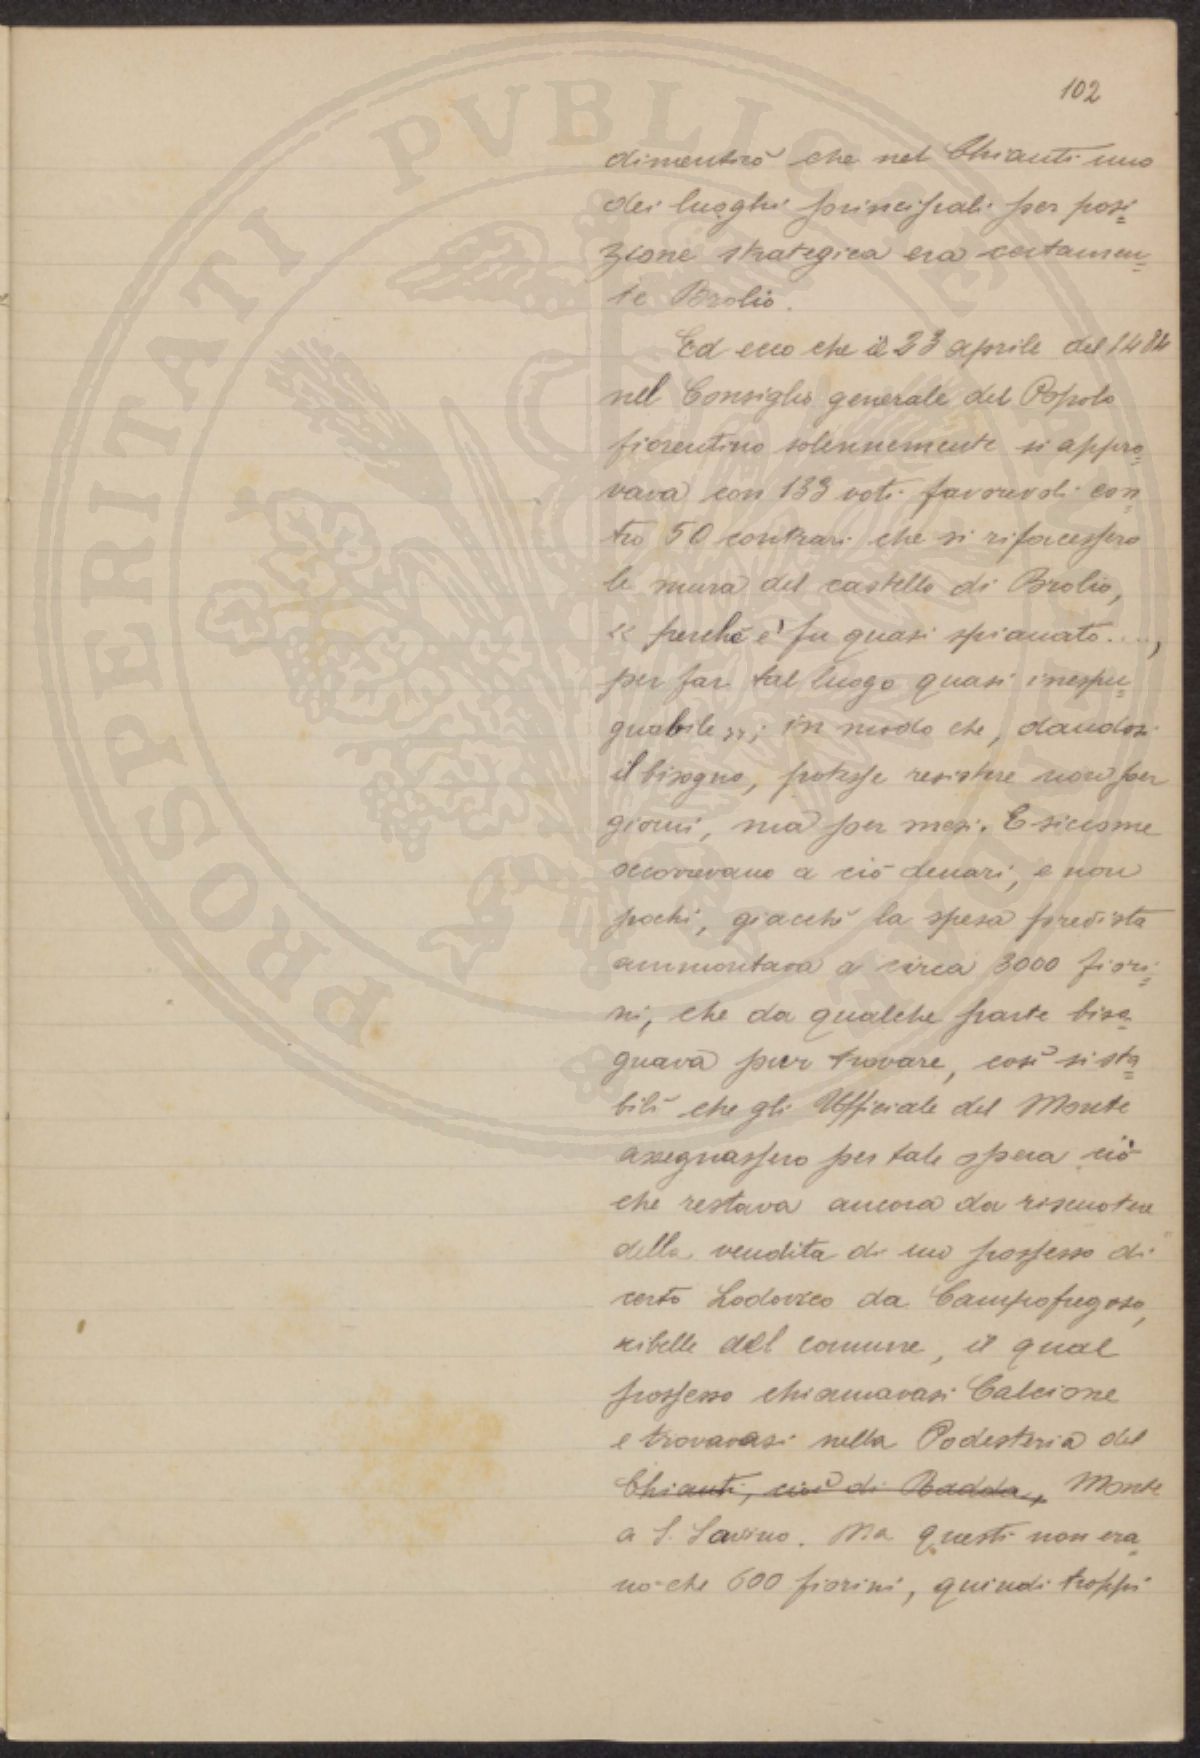 102
dimenticò che nel Chianti uno
dei luoghi principali per posi=
zione strategica era certamen=
te Brolio.
Ed ecco che il 23 aprile del 1484
nel Consiglio generale del Popolo
fiorentino solennemente si appro=
vava con 133 voti favorevoli con=
tro 50 contrari che si rifacessero
le mura del castello di Brolio,
« perchè e' fu quasi spianato....,
per far tal luogo quasi inespu=
gnabile »; in modo che, dandosi
il bisogno, potesse resistere non per
giorni, ma per mesi. E siccome
occorrevano a ciò denari, e non
pochi, giacchè la spesa prevista
ammontava a circa 3000 fiori=
ni, che da qualche parte biso=
gnava pur trovare, così si sta=
bilì che gli Ufficiale del Monte
assegnassero per tale opera ciò
che restava ancora da riscuotere
della vendita di uno possesso di
certo Lodovico da Campofregoso,
ribelle del comune, il qual
possesso chiamavasi Calcione
e trovavasi nella Podesteria del
Chianti, cioè di Radda, Monte
a S. Savino. Ma questi non era=
no che 600 fiorini, quindi troppi
PROSPERITATI PVBLICAE AVGENDAE